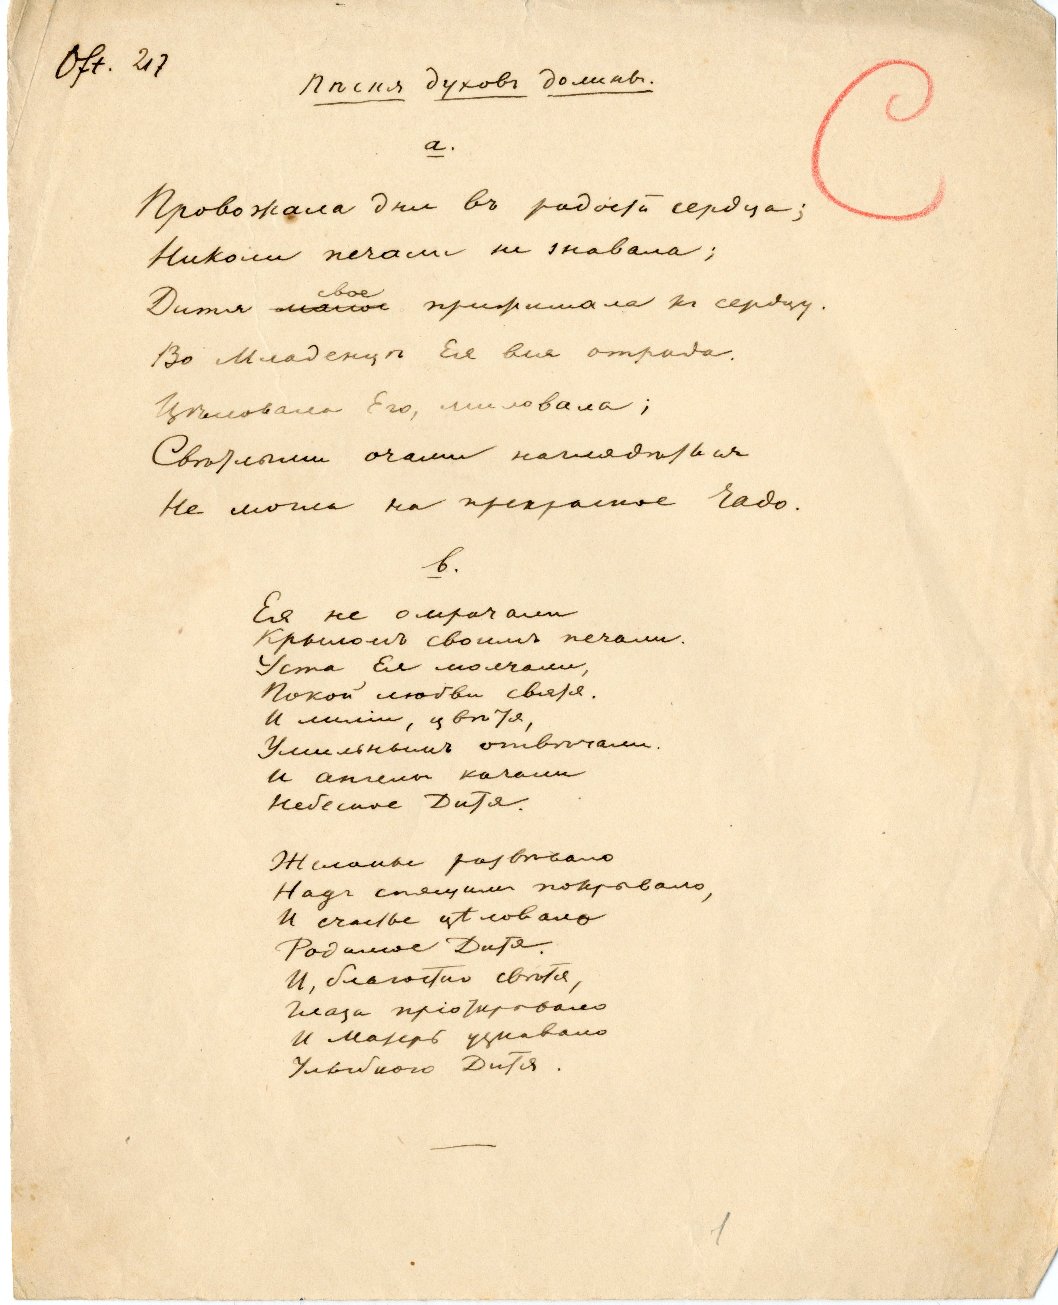 Oft. 217
Пѣсня духовъ долины.
а.
Провожала дни въ радости сердца;
Николи печали не знавала;
Дитя малое свое прижимала къ сердцу.
Во Младенцѣ Ея вся отрада.
Цѣловала Его, миловала;
Свѣтлыми очами наглядѣться
Не могла на прекрасное Чадо.
в.
Ея не омрачали
Крыломъ своимъ печали.
Уста Ея молчали,
Покой любви святя.
И лиліи, цвѣтя,
Умильнымъ отвѣчали.
И ангелы качали
Небесное Дитя.
Желанье развѣвало
Надъ спящими покрывало,
И счастье цѣловало
Родимое Дитя.
И, благостно свѣтя,
Глаза пріоткрывало
И Матерь узнавало
Улыбкою Дитя.
1